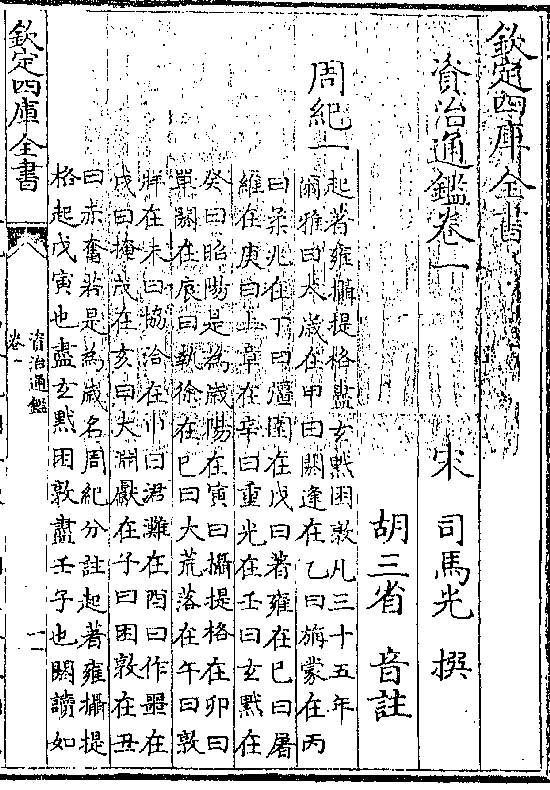 欽定四庫全書
資治通鑑卷一 宋 司馬光 撰
胡三省 音註
周紀一
起著雍攝提格盡玄黓困敦凡三十五年
爾雅曰太歲在甲曰閼逢在乙曰旃蒙在丙
曰柔兆在丁曰彊圉在戊曰著雍在巳曰屠
維在庚曰上章在辛曰重光在壬曰玄黓在
癸曰昭陽是為歲陽在寅曰攝提格在卯曰
單閼在辰曰執徐在巳曰大荒落在午曰敦
牂在未曰協洽在申曰涒灘在酉曰作噩在
戌曰掩茂在亥曰大淵獻在子曰困敦在丑
曰赤奮若是為歲名周紀分註起著雍攝提
格起戊寅也盡玄黓困敦盡壬子也閼讀如
欽定四庫全書
資治通鑑
卷一
一